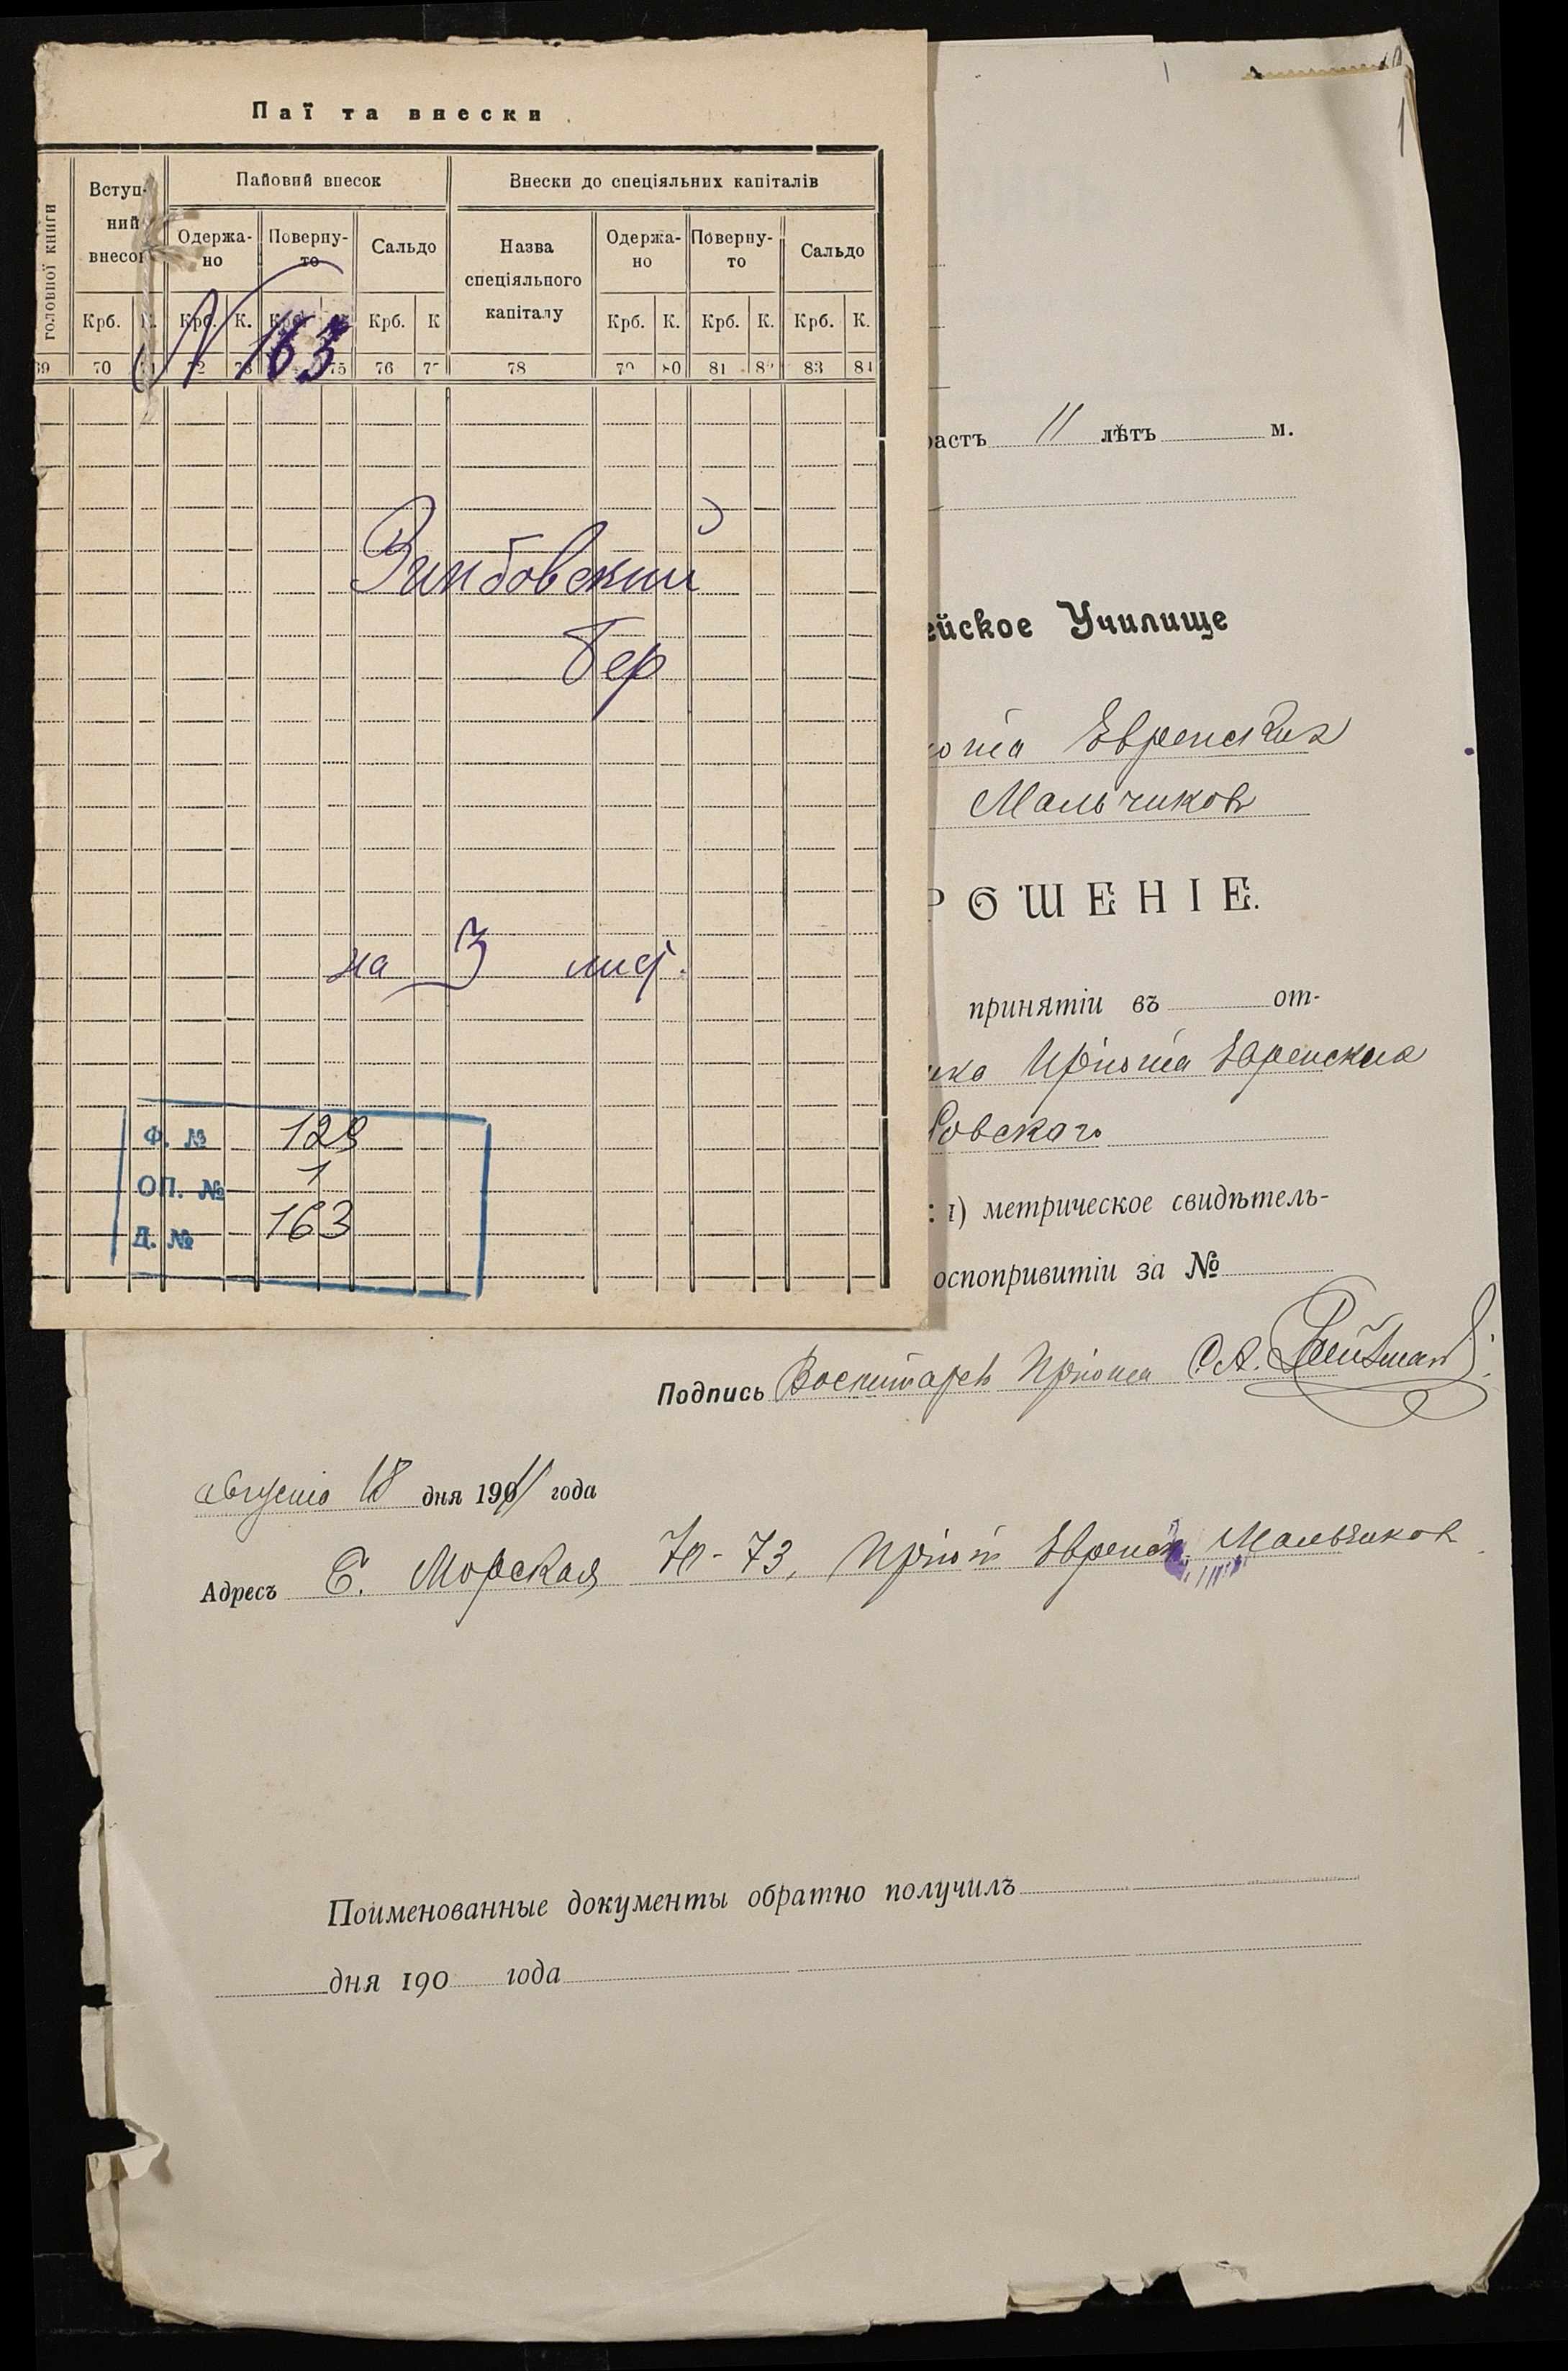 Паї та внески
головної книги
Вступ-
ний
внесок
Пайовий внесок
Внески до спеціяльних капіталів
Одержа-
но
Поверну-
то
Сальдо
Назва
спеціяльного
капіталу
Одержа-
но
Поверну-
то
Сальдо
Крб. К. Крб. К. Крб. К Крб. К. Крб. К. Крб. К.
69 70 72 73 75 76 77 78 79 80 81 82 83 84
N 163
бер
на 3 лис.
Ф. № 129
ОП. № 1
Д. № 163
1
растъ 11 лѣтъ м.
ейское Училище
юта Еврейских
Мальчиков
РОШЕНІЕ.
принятіи въ от-
Пріюта Еврейских
овскаго
: 1) метрическое свидѣтель-
оспопривитіи за №
Подпись Воспитарев Пріюта С. А.
августа 18 дня 1911 года
Адресъ Б. Морская 70-73, Пріют Еврейск. Мальчиков
Поименованные документы обратно получилъ
дня 190 года